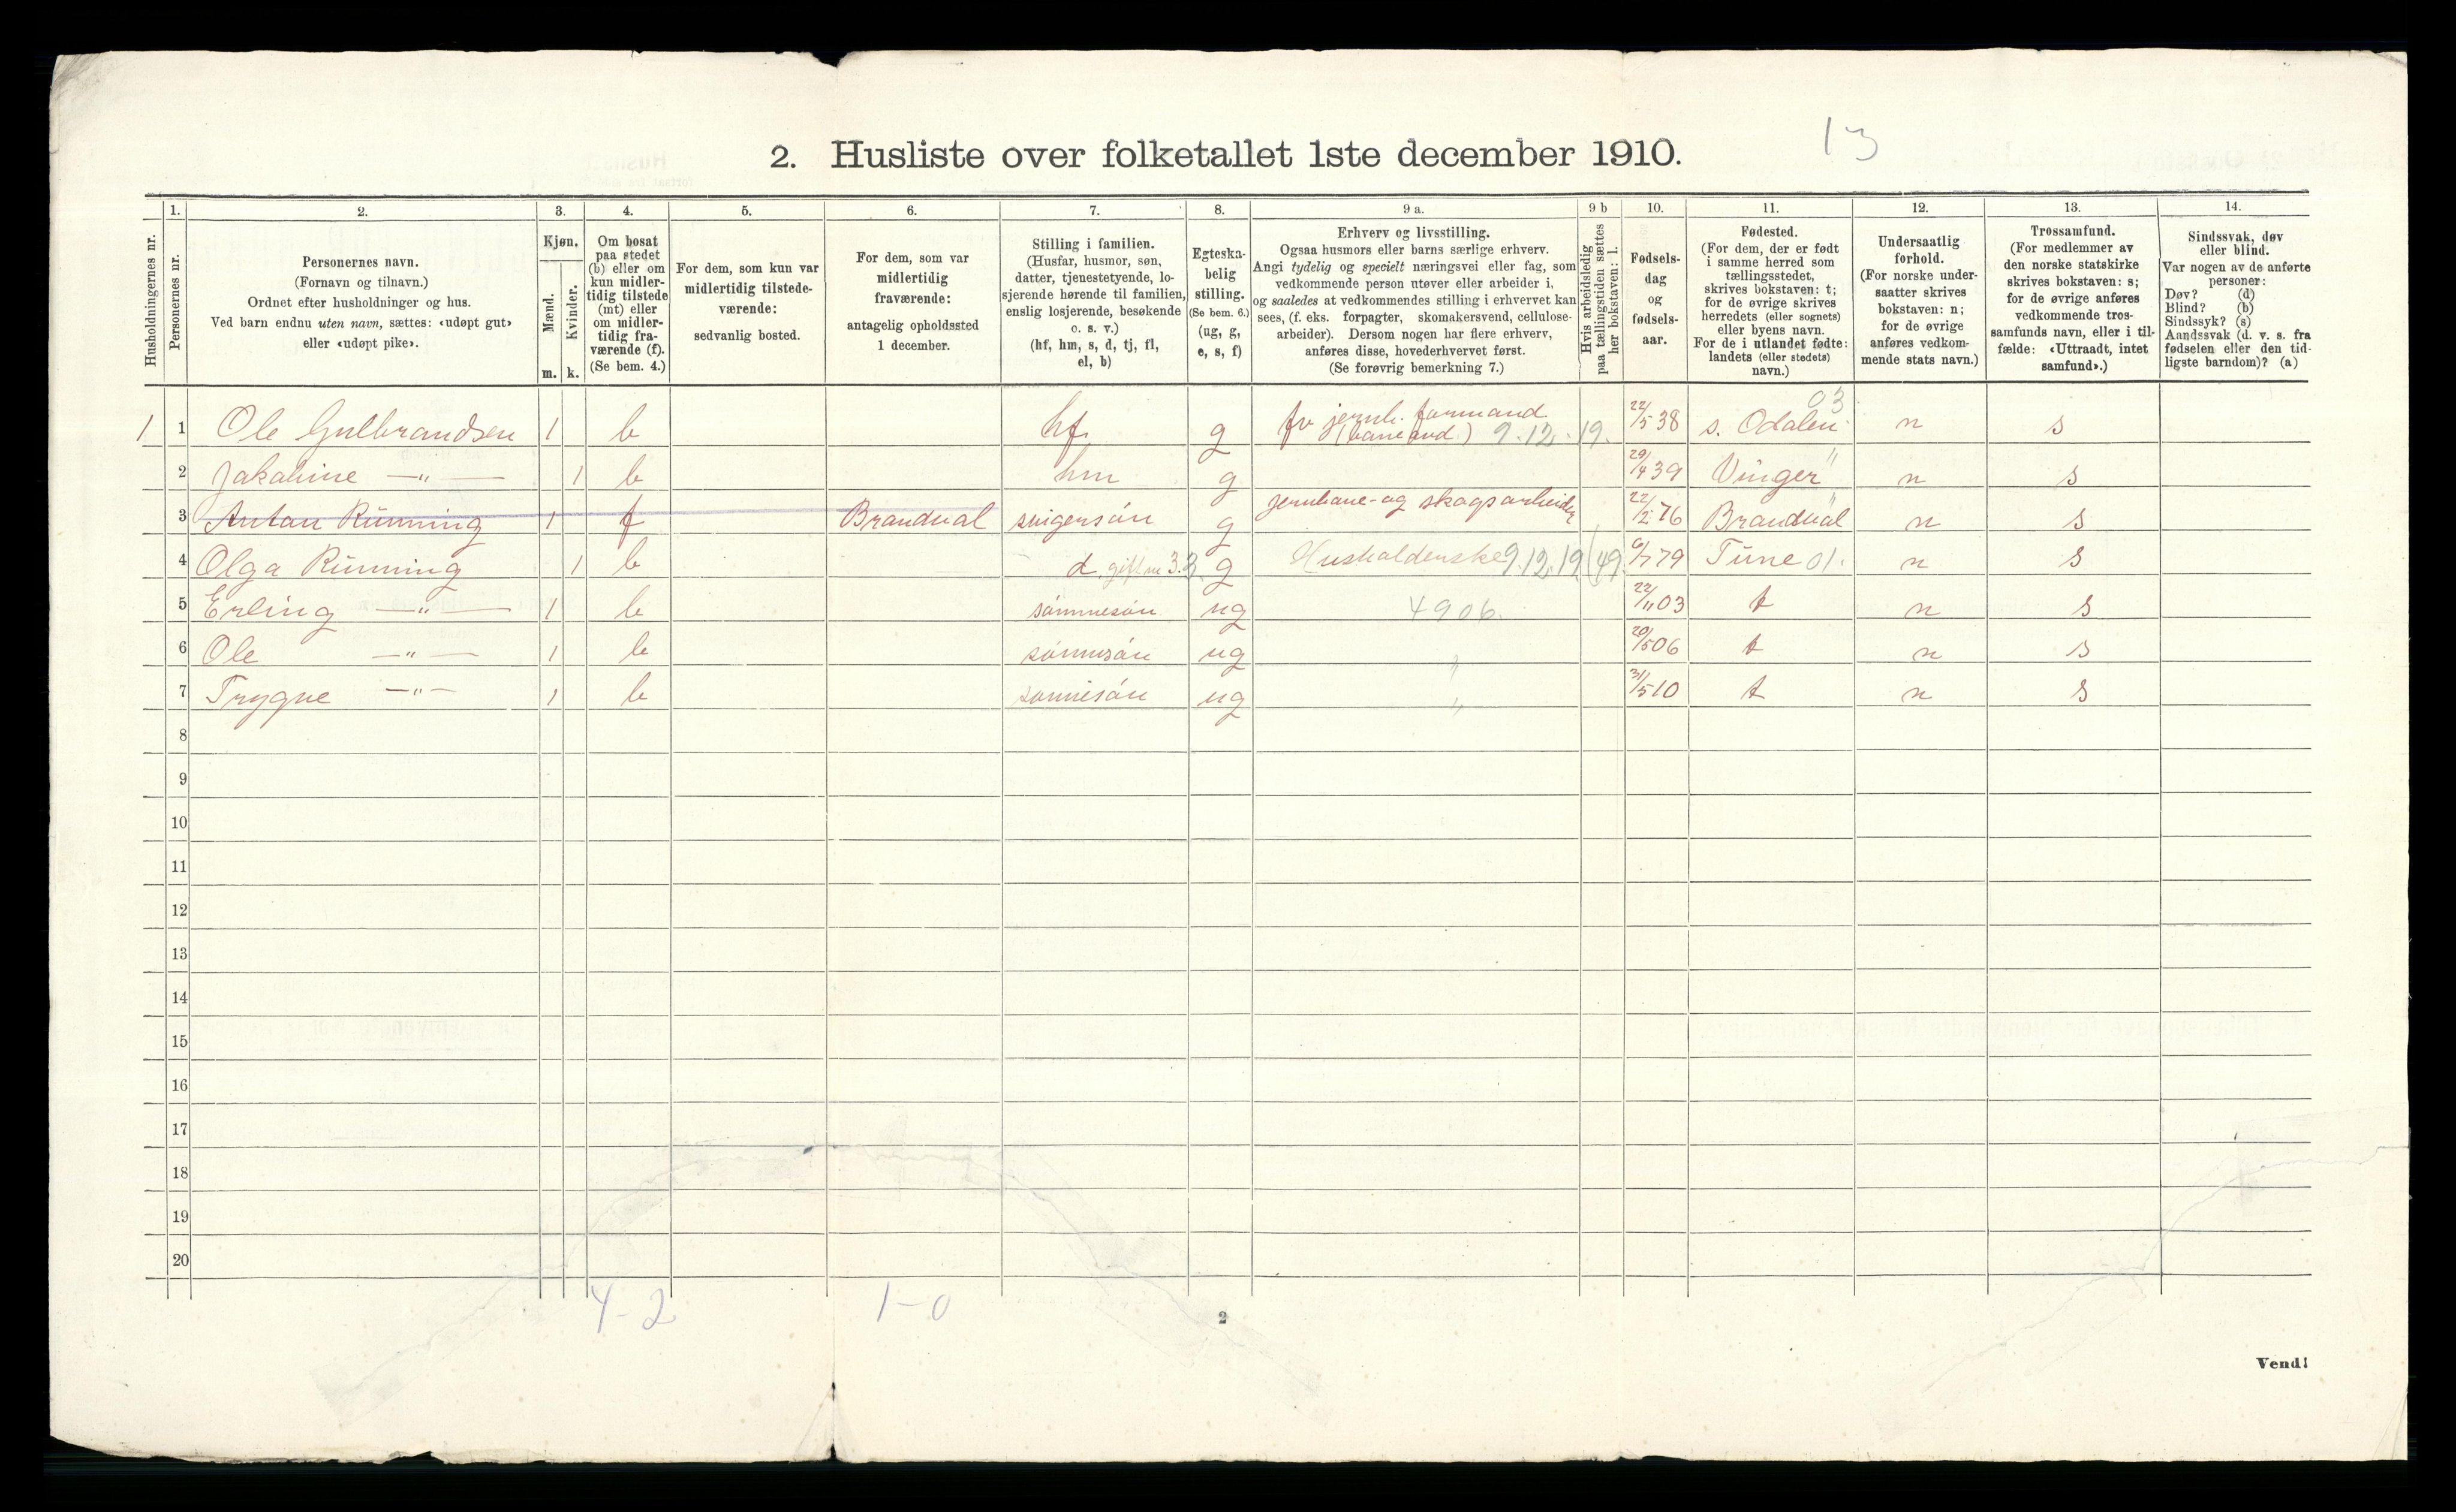 13
2. Husliste over folketallet 1ste december 1910.
Husholdningernes nr.
1.
Personernes nr.
2.
Personernes navn.
(Fornavn og tilnavn.)
Ordnet efter husholdninger og hus.
Ved barn endnu uten navn, sættes: «udøpt gut»
eller «udøpt pike».
3.
Kjøn.
Mænd.
Kvinder.
m. k.
4.
Om bosat
paa stedet
(b) eller om
kun midler-
tidig tilstede
(mt) eller
om midler-
tidig fra-
værende (f).
(Se bem. 4.)
5.
For dem, som kun var
midlertidig tilstede-
værende:
sedvanlig bosted.
6.
For dem, som var
midlertidig
fraværende:
antagelig opholdssted
1 december.
7.
Stilling i familien.
(Husfar, husmor, søn,
datter, tjenestetyende, lo-
sjerende hørende til familien,
enslig losjerende, besøkende
o. s. v.)
(hf, hm, s, d, tj, fl,
el, b)
8.
Egteska-
belig
stilling.
(Se bem. 6.)
(ug, g,
e, s, f)
9 a.
Erhverv og livsstilling.
Ogsaa husmors eller barns særlige erhverv.
Angi tydelig og specielt næringsvei eller fag, som
vedkommende person utøver eller arbeider i,
og saaledes at vedkommendes stilling i erhvervet kan
sees, (f. eks. forpagter, skomakersvend, cellulose-
arbeider). Dersom nogen har flere erhverv,
anføres disse, hovederhvervet først.
(Se forøvrig bemerkning 7.)
9 b
Hvis arbeidsledig
paa tællingstiden sættes
her bokstaven: l.
10.
Fødsels-
dag
og
fødsels-
aar.
11.
Fødested.
(For dem, der er født
i samme herred som
tællingsstedet,
skrives bokstaven: t;
for de øvrige skrives
herredets (eller sognets)
eller byens navn.
For de i utlandet fødte:
landets (eller stedets)
navn.)
12.
Undersaatlig
forhold.
(For norske under-
saatter skrives
bokstaven: n;
for de øvrige
anføres vedkom-
mende stats navn.)
13.
Trossamfund.
(For medlemmer av
den norske statskirke
skrives bokstaven: s;
for de øvrige anføres
vedkommende tros-
samfunds navn, eller i til-
fælde: «Uttraadt, intet
samfund».)
14.
Sindssvak, døv
eller blind.
Var nogen av de anførte
personer:
Døv? (d)
Blind? (b)
Sindssyk? (s)
Aandssvak (d. v. s. fra
fødselen eller den tid-
ligste barndom)? (a)
1 1 Ole Gulbrandsen 1 b hf. g fv jernb. formand. (banearbd.) 9.12.19. 22/5 38 s. Odalen 03 n s
2 Jakobine —"— 1 b hm g 29/4 39 Vinger " n s
3 Anton Rünning 1 f Brandval svigersón g jernbane- og skogsarbeider 22/2 76 Brandval " n s
4 Olga Rünning 1 b d. gift m 3. 3. g Husholderske 9.12.19 (49. 6/7 79 Tune 01. n s
5 Erling —"— 1 b sónnesón ug 4906. 22/11 03 t n s
6 Ole —"— 1 b sónnesón ug " 20/5 06 t n s
7 Trygve —"— 1 b sónnesón ug " 31/5 10 t n s
8
9
10
11
12
13
14
15
16
17
18
19
20
4-2 1-0
2
Vend!